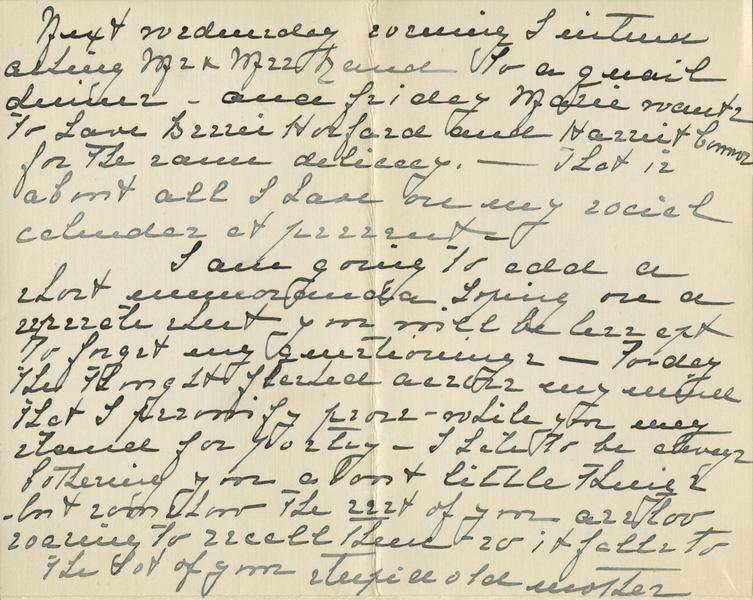 Next wednesday evening I intend
asking Mr & Mrs Rand to a quail
dinner - and friday Marie wants
to have Bessie Hosford and Harriet Connor
for the same delicacy. — That is
about all I have on my social
calender at present -
I am going to add a
short memoranda hoping on a
seperate sheet you will be less apt
to forget my questionings — To-day
the thought flashed across my mind
that I personify prose - while you may
stand for poetry - I hate to be always
bothering you about little things
- but somehow the rest of you are too
soaring to recall them - so it falls to
the lot of your stupid old mother